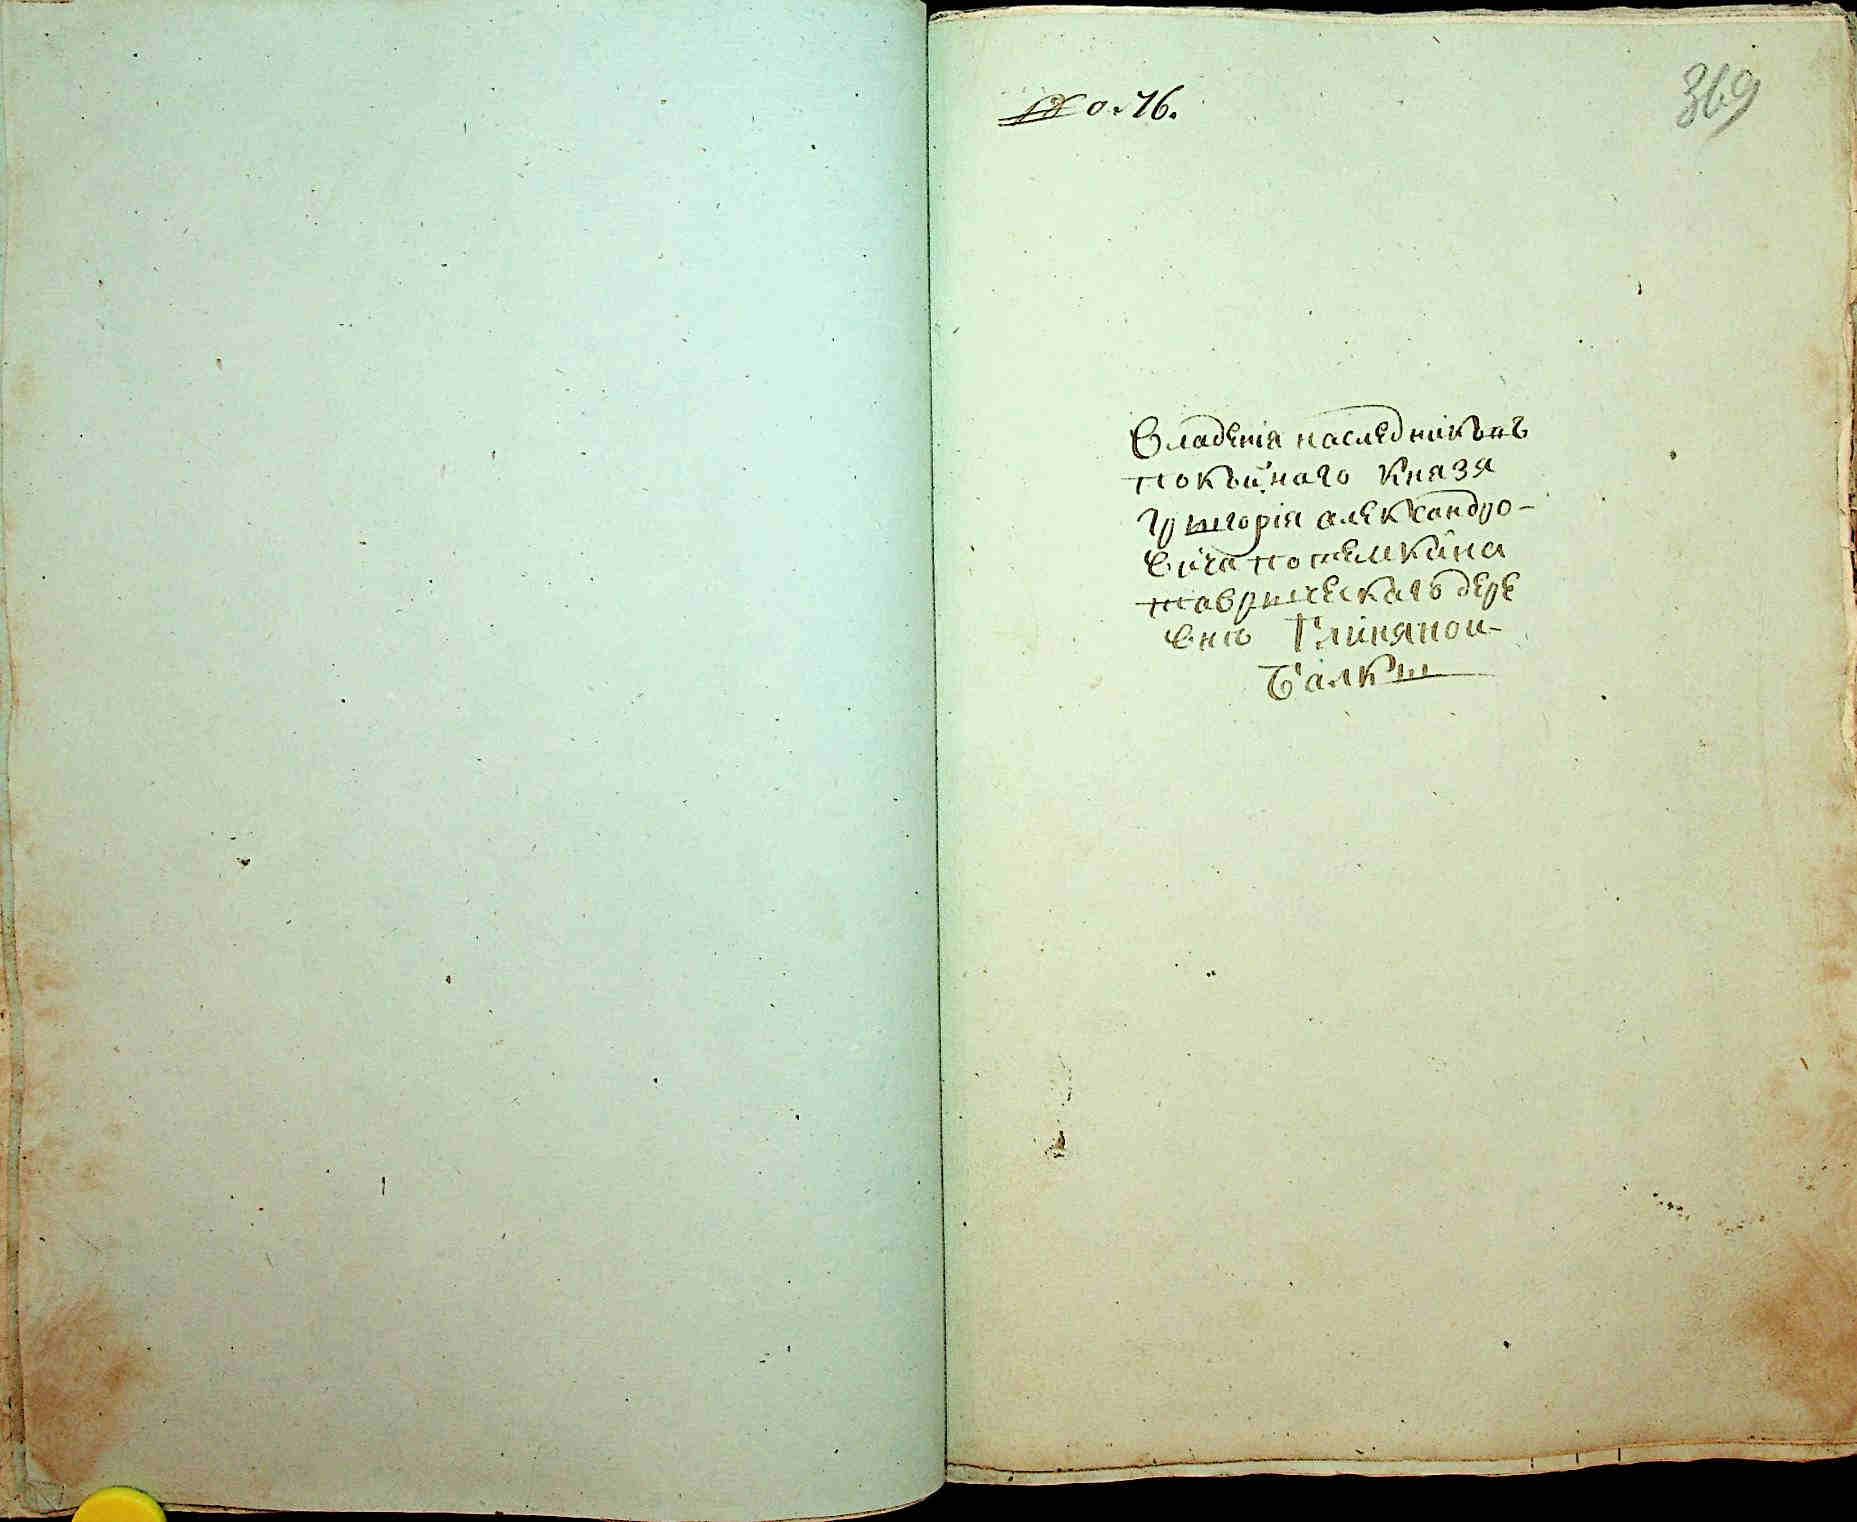 No. 76.
369
Владения наследниковъ
покойнаго Князя
Григорія александро-
вича потемкина
таврическаго дере
внѣ Глиняной
Балки